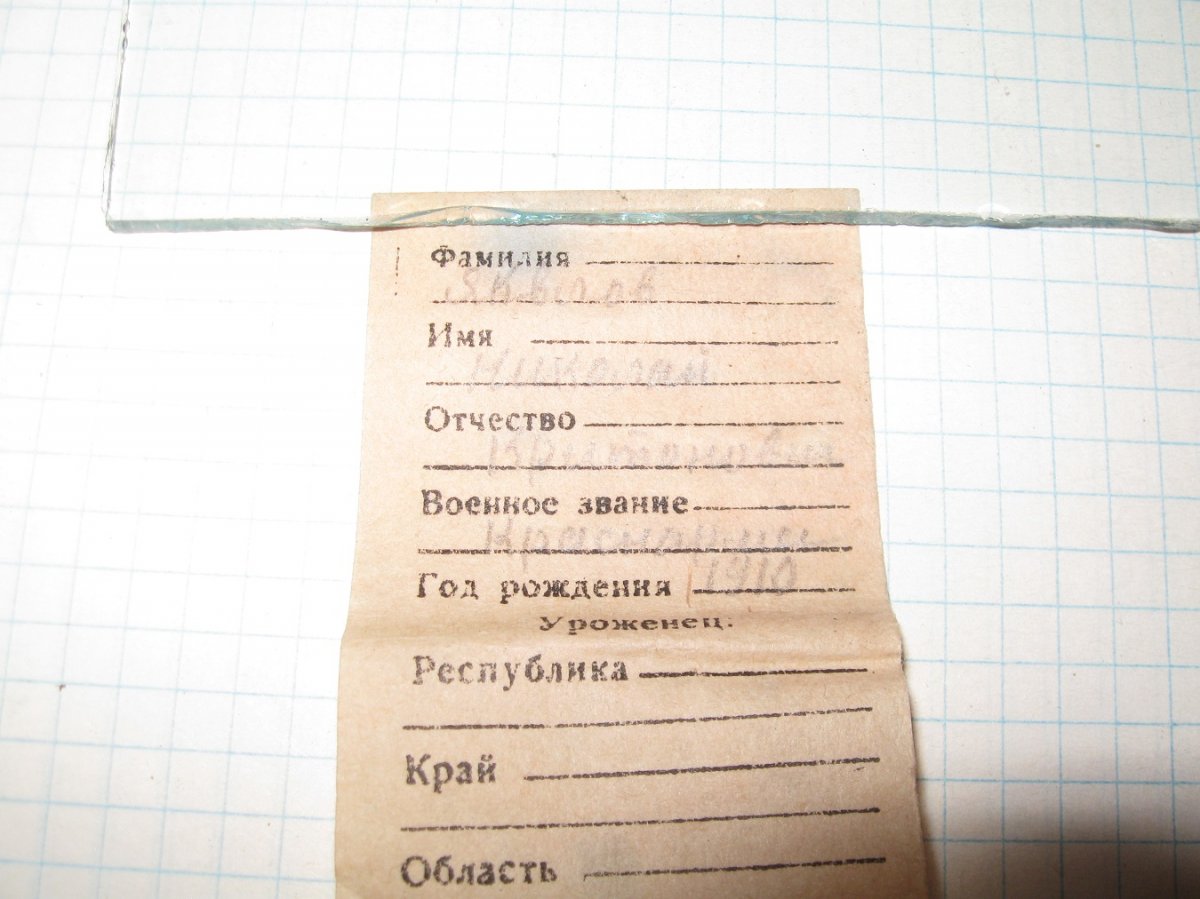 Фамилия
Имя
Николай
Отчество
Военное звание
Год рождения 1910
Уроженец:
Республика
Край
Область